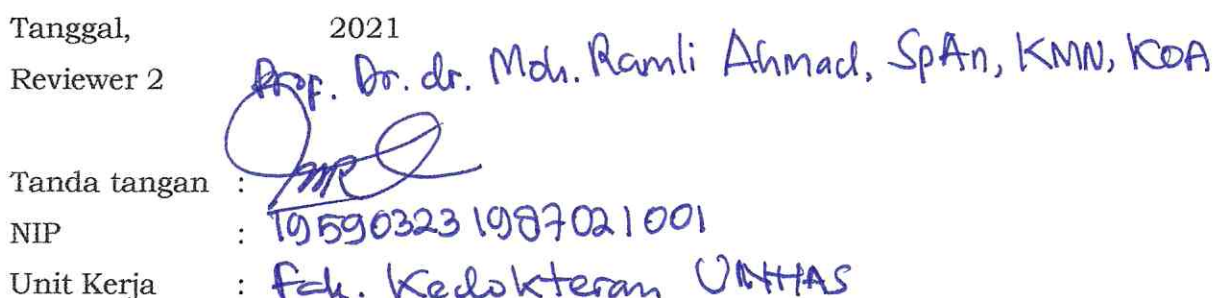 Tanggal, 2021
Reviewer 2 Prof. Dr. dr. Moh. Ramli Ahmad, SpAn, KMN, KOA
Tanda tangan :
NIP : 19590323 1987021001
Unit Kerja : Fak. Kedokteran UNHAS